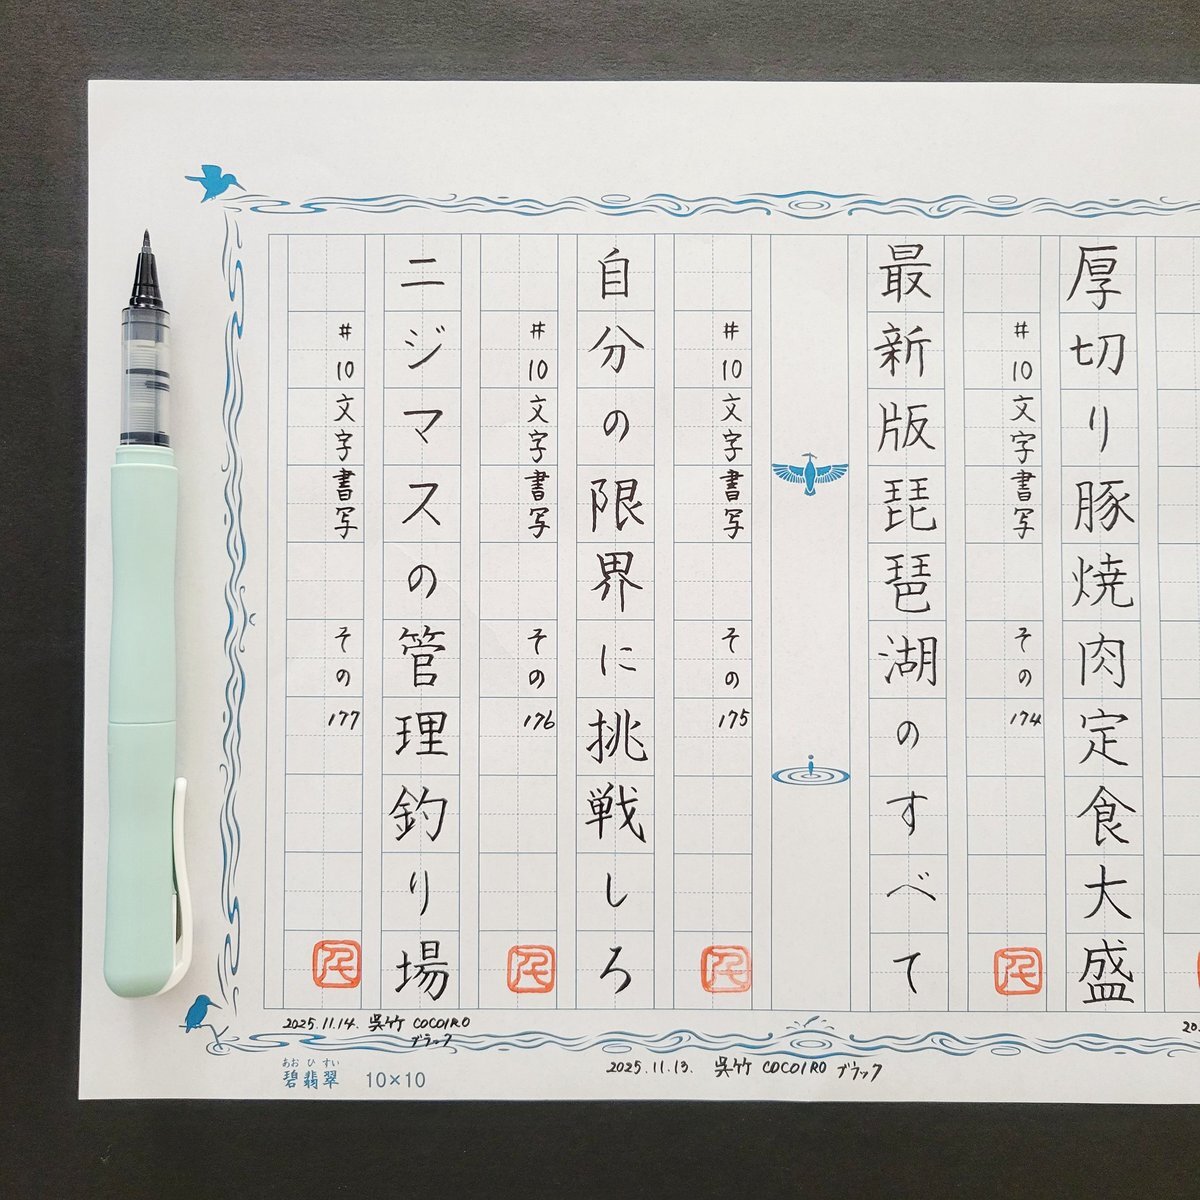 厚切り豚焼肉定食大盛
#10文字書写 その174
最新版琵琶湖のすべて
#10文字書写 その175
自分の限界に挑戦しろ
#10文字書写 その176
ニジマスの管理釣り場
#10文字書写 その177
2025.11.13. 呉竹 COCOIRO ブラック
2025.11.14. 呉竹 COCOIRO
ブラック
あお ひ すい
碧翡翠 10×10